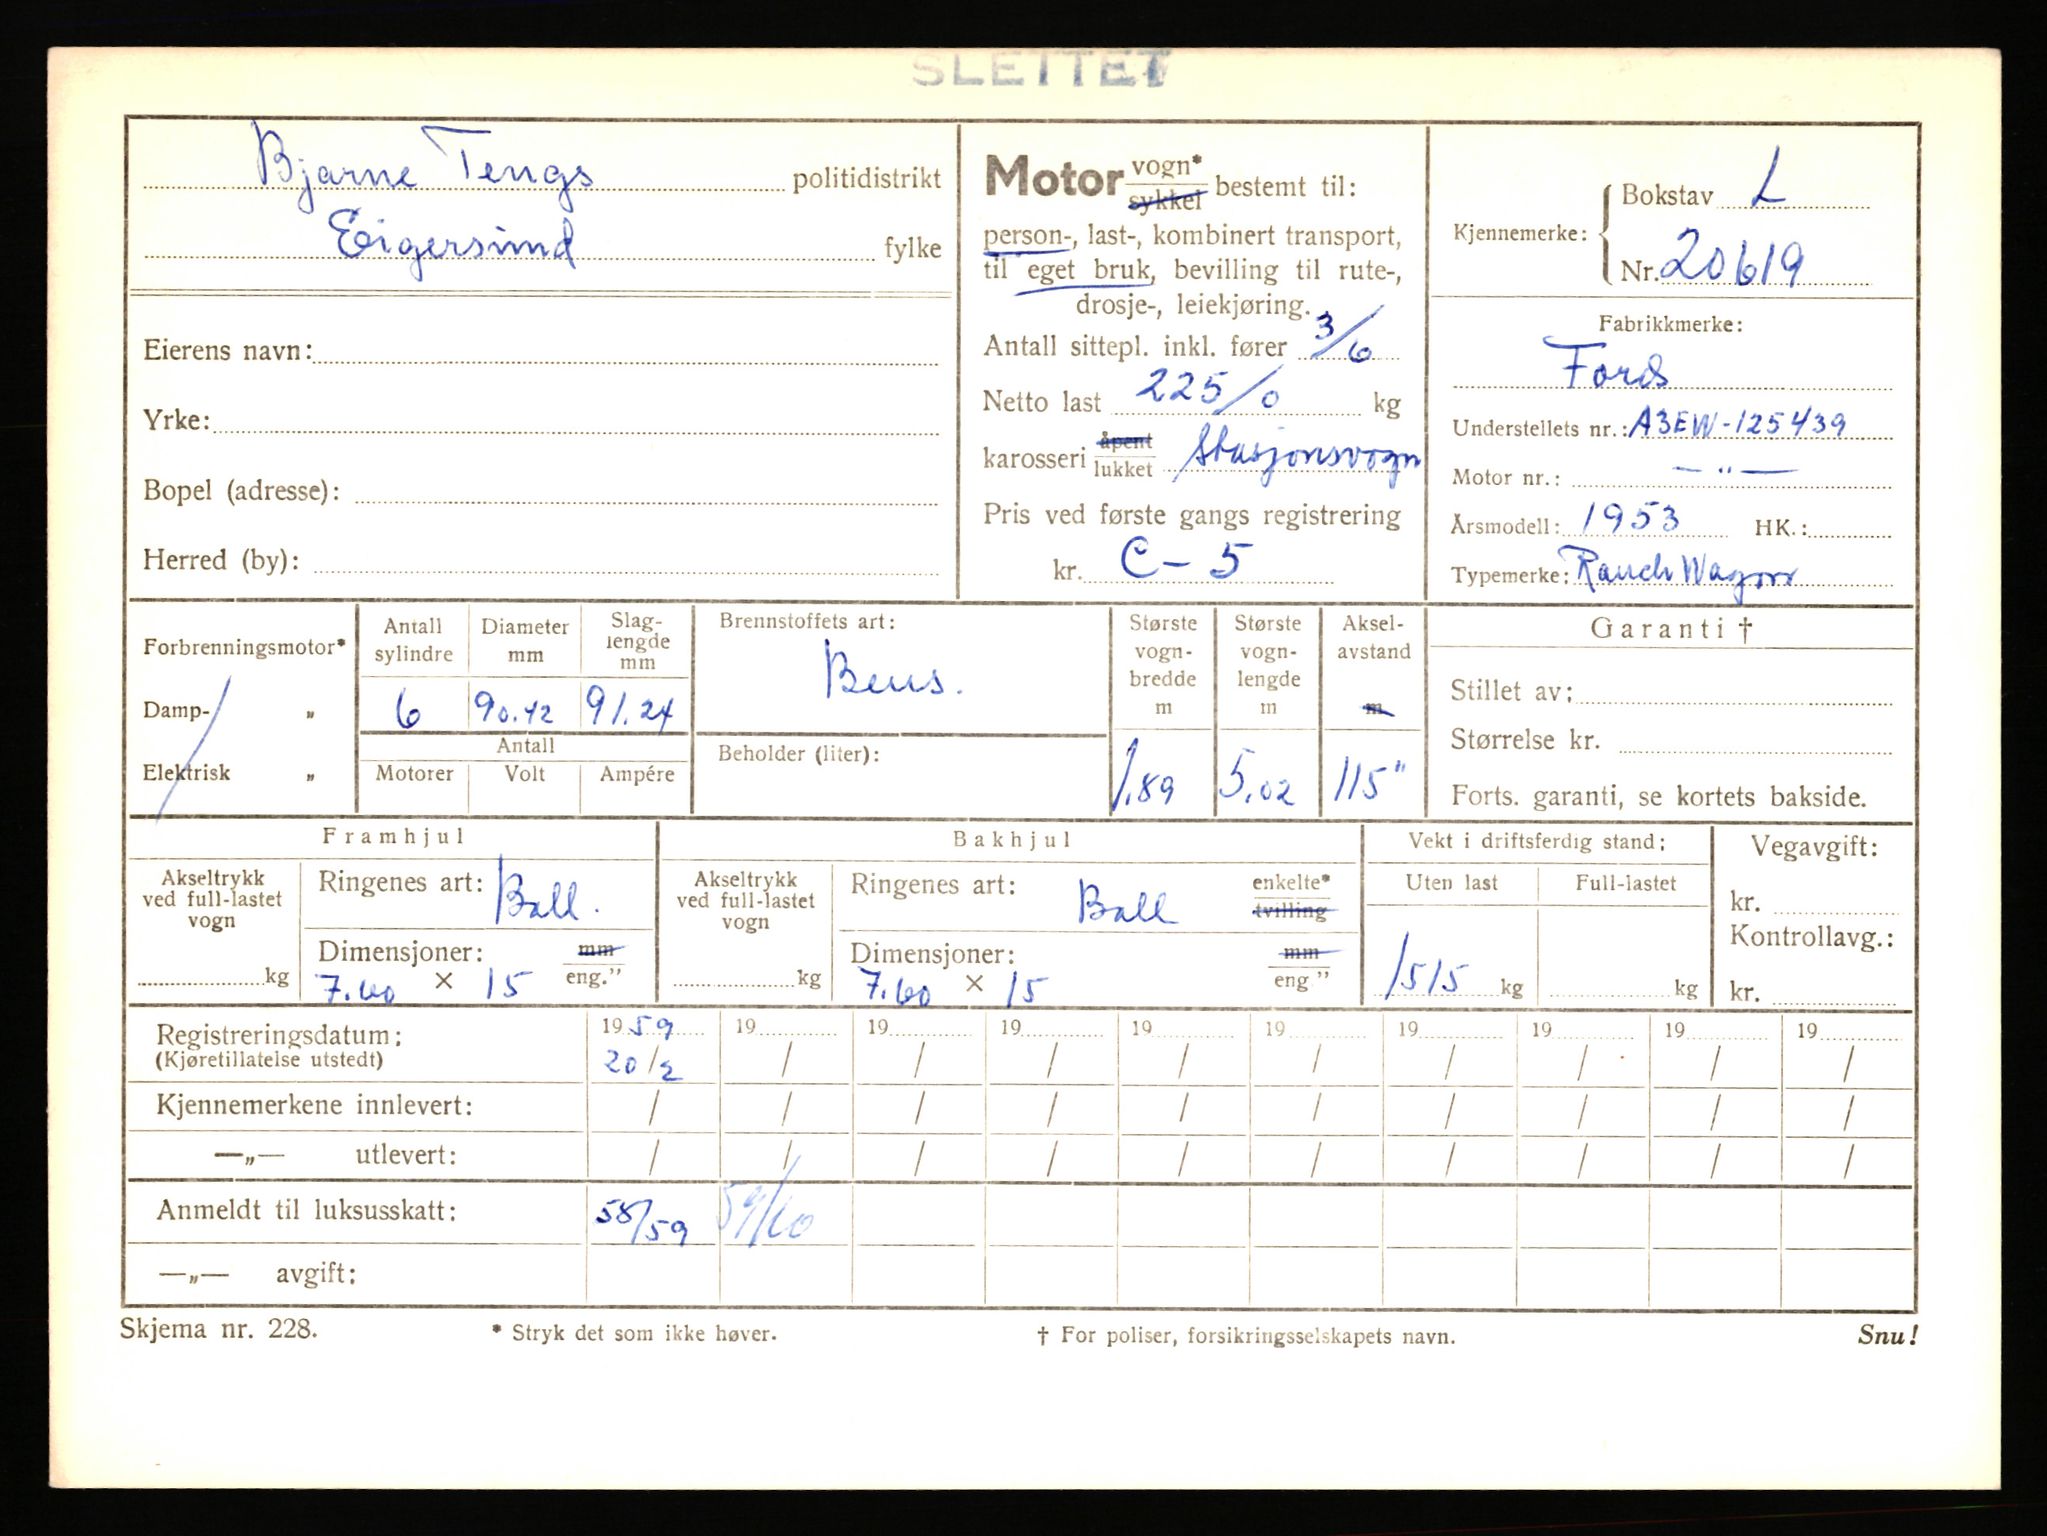 SLETTET
Bjarne Tengs politidistrikt
Eigersund fylke
Eierens navn:
Yrke:
Bopel (adresse):
Herred (by):
Motor vogn* sykkel bestemt til:
person-, last-, kombinert transport,
til eget bruk, bevilling til rute-,
drosje-, leiekjøring.
Antall sittepl. inkl. fører 3/6
Netto last 225/0 kg
karosseri åpent lukket Stasjonsvogn
Pris ved første gangs registrering
kr. C-5
Kjennemerke: Bokstav L
Nr. 20619
Fabrikkmerke:
Ford
Understellets nr.: A3EW-125439
Motor nr.: — " —
Årsmodell: 1953 HK.:
Typemerke: Ranch Wagon
Forbrenningsmotor*
Damp- "
Elektrisk "
Antall sylindre
Diameter mm
Slag-lengde mm
6 90.42 91.24
Antall
Motorer Volt Ampére
Brennstoffets art:
Bens.
Beholder (liter):
Største vogn-bredde m
1.89
Største vogn-lengde m
5.02
Aksel-avstand m
115"
Garanti †
Stillet av:
Størrelse kr.
Forts. garanti, se kortets bakside.
Framhjul
Akseltrykk ved full-lastet vogn
kg
Ringenes art: Ball.
Dimensjoner: mm
7.60 × 15 eng."
Bakhjul
Akseltrykk ved full-lastet vogn
kg
Ringenes art: Ball enkelte* tvilling
Dimensjoner: mm
7.60 × 15 eng"
Vekt i driftsferdig stand:
Uten last Full-lastet
1515 kg kg
Vegavgift:
kr.
Kontrollavg.:
kr.
Registreringsdatum: 1959 19 19 19 19 19 19 19 19 19
(Kjøretillatelse utstedt) 20/2 / / / / / / / / /
Kjennemerkene innlevert: / / / / / / / / / /
—„— utlevert: / / / / / / / / / /
Anmeldt til luksusskatt: 58/59 59/60
—„— avgift:
Skjema nr. 228. * Stryk det som ikke høver. † For poliser, forsikringsselskapets navn. Snu!